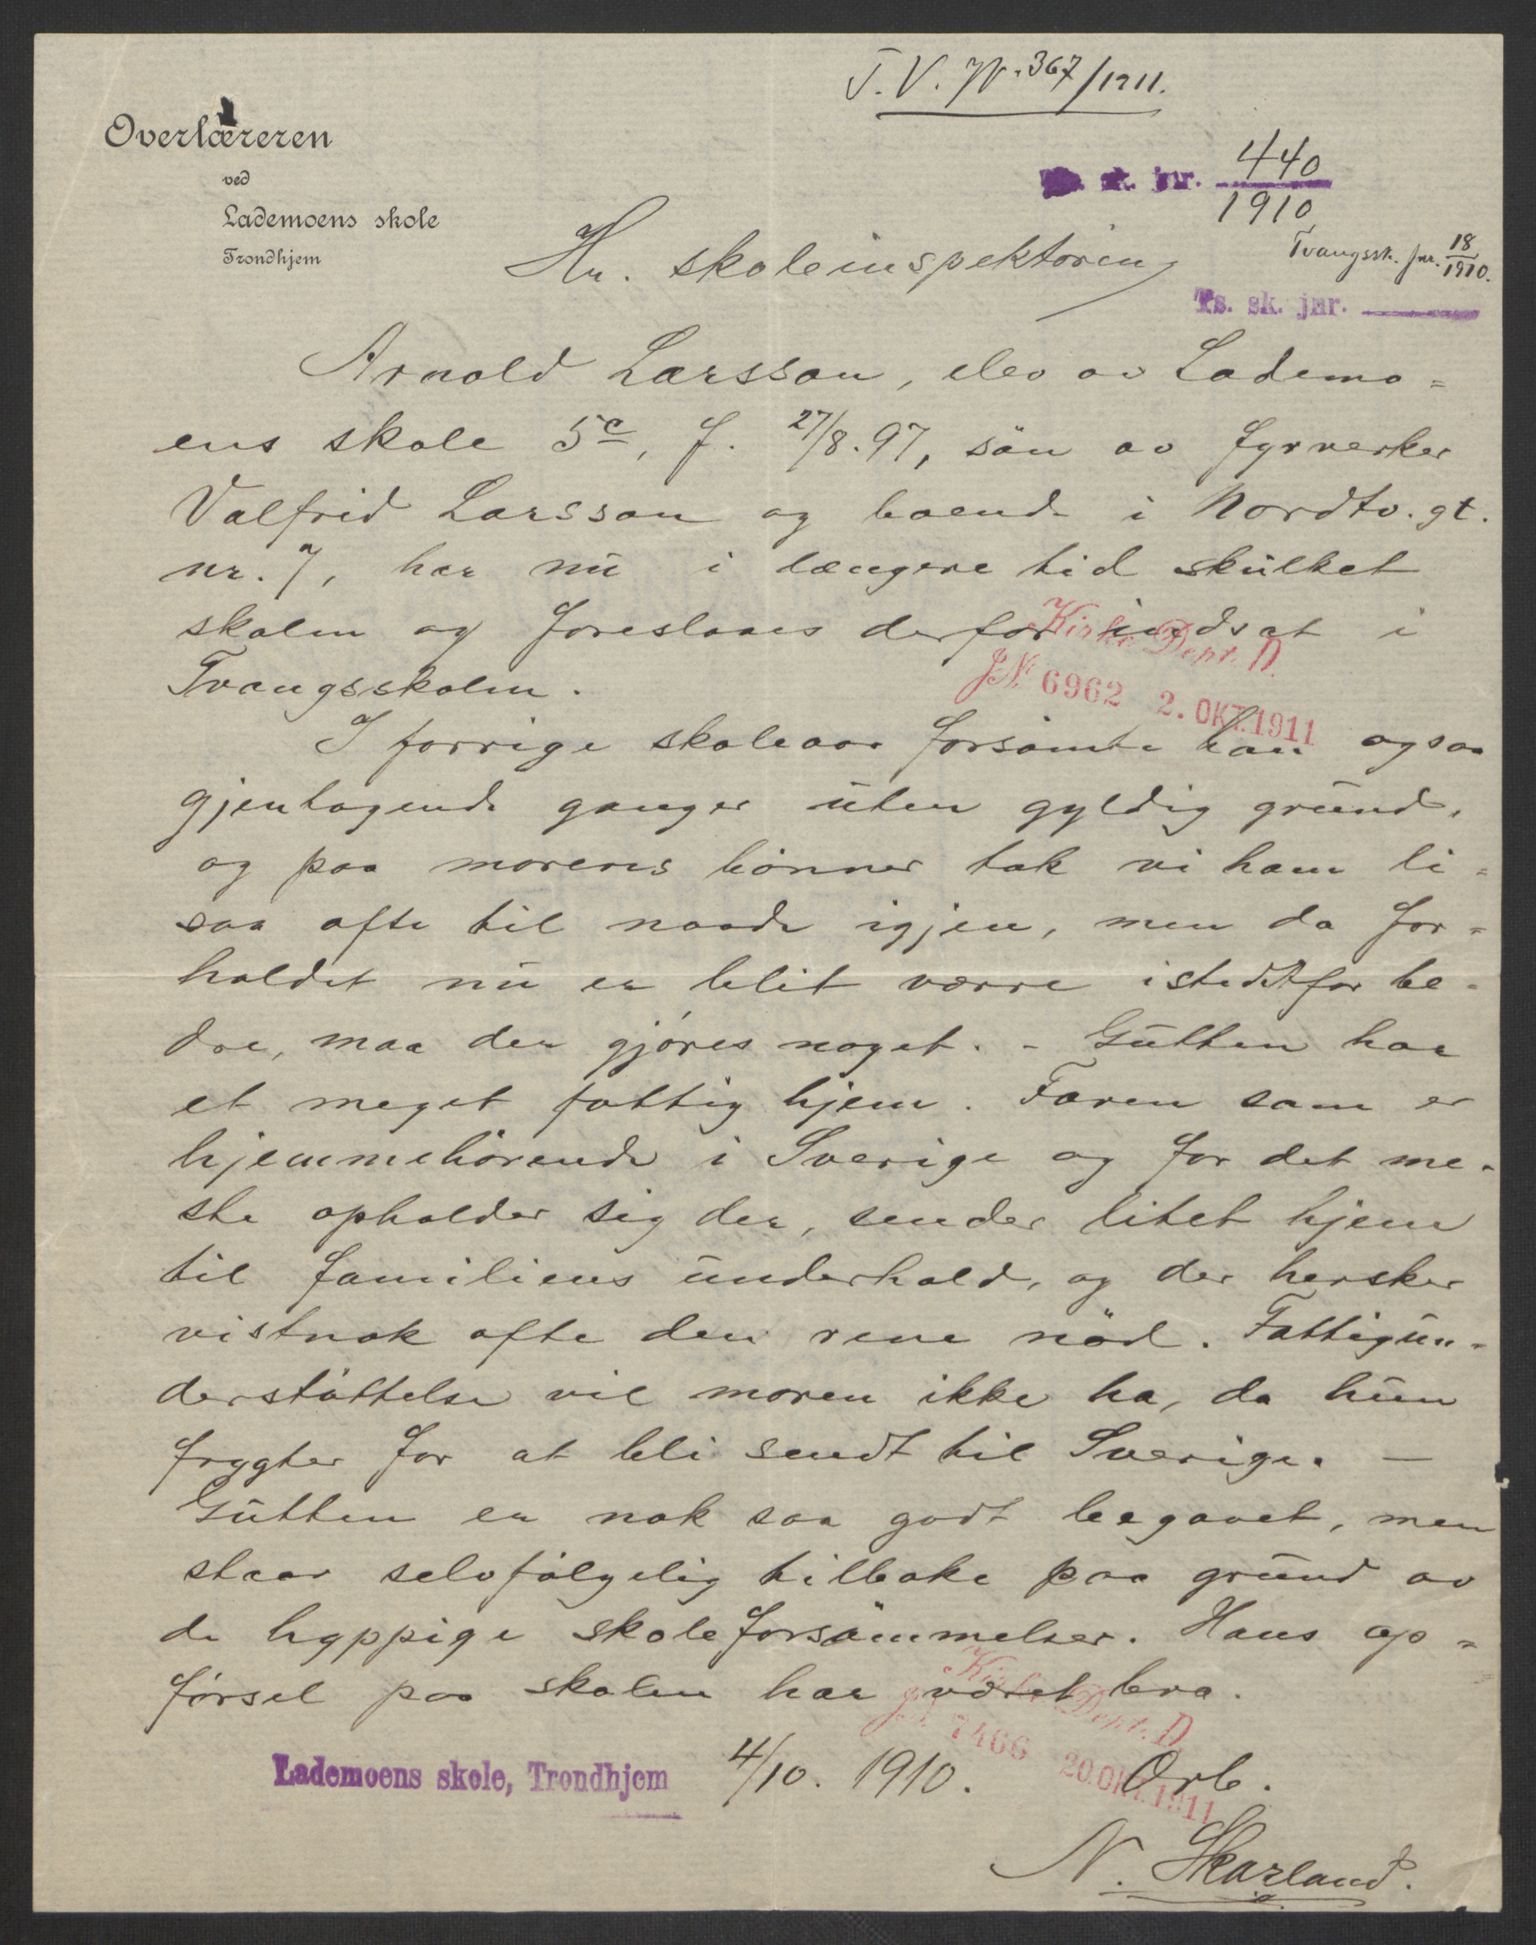 T. V. Nr. 367/1911.
Overlæreren
ved
Lademoens skole
Trondhjem
sk. jnr. 440
1910
Tvangssk. Jnr. 18/1910.
Ts. sk. jnr.
Hr. skoleinspektøren,
Arnold Larsson, elev av Lademo=
ens skole 5c, f. 27/8.97, sön av fyrverker
Valfrid Larsson og boende i Nordtv. gt.
nr. 7, har nu i længere tid skulket
skolen og foreslaaes derfor indsat i
Tvangsskolen.
Kirke Dept. D.
JN 6962 2. OKT. 1911
I forrige skoleaar forsömte han ogsaa
gjentagende ganger uten gyldig grund,
og paa morens bönner tok vi ham li=
saa ofte til naade igjen, men da for=
holdet nu er blit værre istedetfor be-
dre, maa der gjöres noget. - Gutten har
et meget fattig hjem. Faren som er
hjemmehörende i Sverige og for det me-
ste opholder sig der, sender litet hjem
til familiens underhold, og der hersker
vistnok ofte den rene nöd. Fattigun-
derstöttelse vil moren ikke ha, da hun
frygter for at bli sendt til Sverige. —
Gutten er nok saa godt begavet, men
staar selvfölgelig tilbake paa grund av
de hyppige skoleforsömmelser. Hans op=
försel paa skolen har været bra.
Kirke Dept. D.
JN 7466 20. OKT. 1911
Lademoens skole, Trondhjem 4/10. 1910. Ærb.
N. Skarland.